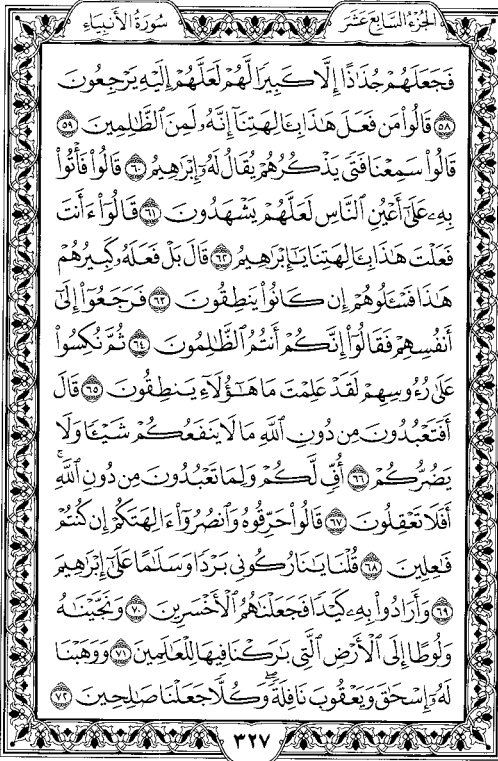 الجُزءُ السَّابِعَ عَشَرَ سُورَةُ الأَنبِيَاءِ
فَجَعَلَهُمْ جُذَٰذًا إِلَّا كَبِيرًا لَّهُمْ لَعَلَّهُمْ إِلَيْهِ يَرْجِعُونَ
٥٨ قَالُوا۟ مَن فَعَلَ هَٰذَا بِـَٔالِهَتِنَآ إِنَّهُۥ لَمِنَ ٱلظَّٰلِمِينَ ٥٩
قَالُوا۟ سَمِعْنَا فَتًى يَذْكُرُهُمْ يُقَالُ لَهُۥٓ إِبْرَٰهِيمُ ٦٠ قَالُوا۟ فَأْتُوا۟
بِهِۦ عَلَىٰٓ أَعْيُنِ ٱلنَّاسِ لَعَلَّهُمْ يَشْهَدُونَ ٦١ قَالُوٓا۟ ءَأَنتَ
فَعَلْتَ هَٰذَا بِـَٔالِهَتِنَا يَٰٓإِبْرَٰهِيمُ ٦٢ قَالَ بَلْ فَعَلَهُۥ كَبِيرُهُمْ
هَٰذَا فَسْـَٔلُوهُمْ إِن كَانُوا۟ يَنطِقُونَ ٦٣ فَرَجَعُوٓا۟ إِلَىٰٓ
أَنفُسِهِمْ فَقَالُوٓا۟ إِنَّكُمْ أَنتُمُ ٱلظَّٰلِمُونَ ٦٤ ثُمَّ نُكِسُوا۟
عَلَىٰ رُءُوسِهِمْ لَقَدْ عَلِمْتَ مَا هَٰٓؤُلَآءِ يَنطِقُونَ ٦٥ قَالَ
أَفَتَعْبُدُونَ مِن دُونِ ٱللَّهِ مَا لَا يَنفَعُكُمْ شَيْـًٔا وَلَا
يَضُرُّكُمْ ٦٦ أُفٍّ لَّكُمْ وَلِمَا تَعْبُدُونَ مِن دُونِ ٱللَّهِ ۖ
أَفَلَا تَعْقِلُونَ ٦٧ قَالُوا۟ حَرِّقُوهُ وَٱنصُرُوٓا۟ ءَالِهَتَكُمْ إِن كُنتُمْ
فَٰعِلِينَ ٦٨ قُلْنَا يَٰنَارُ كُونِى بَرْدًا وَسَلَٰمًا عَلَىٰٓ إِبْرَٰهِيمَ
٦٩ وَأَرَادُوا۟ بِهِۦ كَيْدًا فَجَعَلْنَٰهُمُ ٱلْأَخْسَرِينَ ٧٠ وَنَجَّيْنَٰهُ
وَلُوطًا إِلَى ٱلْأَرْضِ ٱلَّتِى بَٰرَكْنَا فِيهَا لِلْعَٰلَمِينَ ٧١ وَوَهَبْنَا
لَهُۥٓ إِسْحَٰقَ وَيَعْقُوبَ نَافِلَةً ۖ وَكُلًّا جَعَلْنَا صَٰلِحِينَ ٧٢
٣٢٧